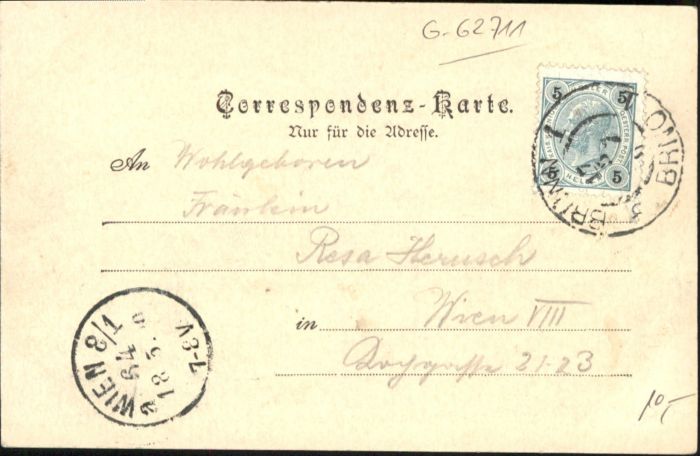 G-62711
Correspondenz-Karte.
Nur für die Adresse.
An Wohlgeboren
Fräulein
Resa Herusch
in Wien VIII
21-23
5 5
5 5
BRÜNN 1
BRNO
WIEN 8/1
64
18 5
10,-